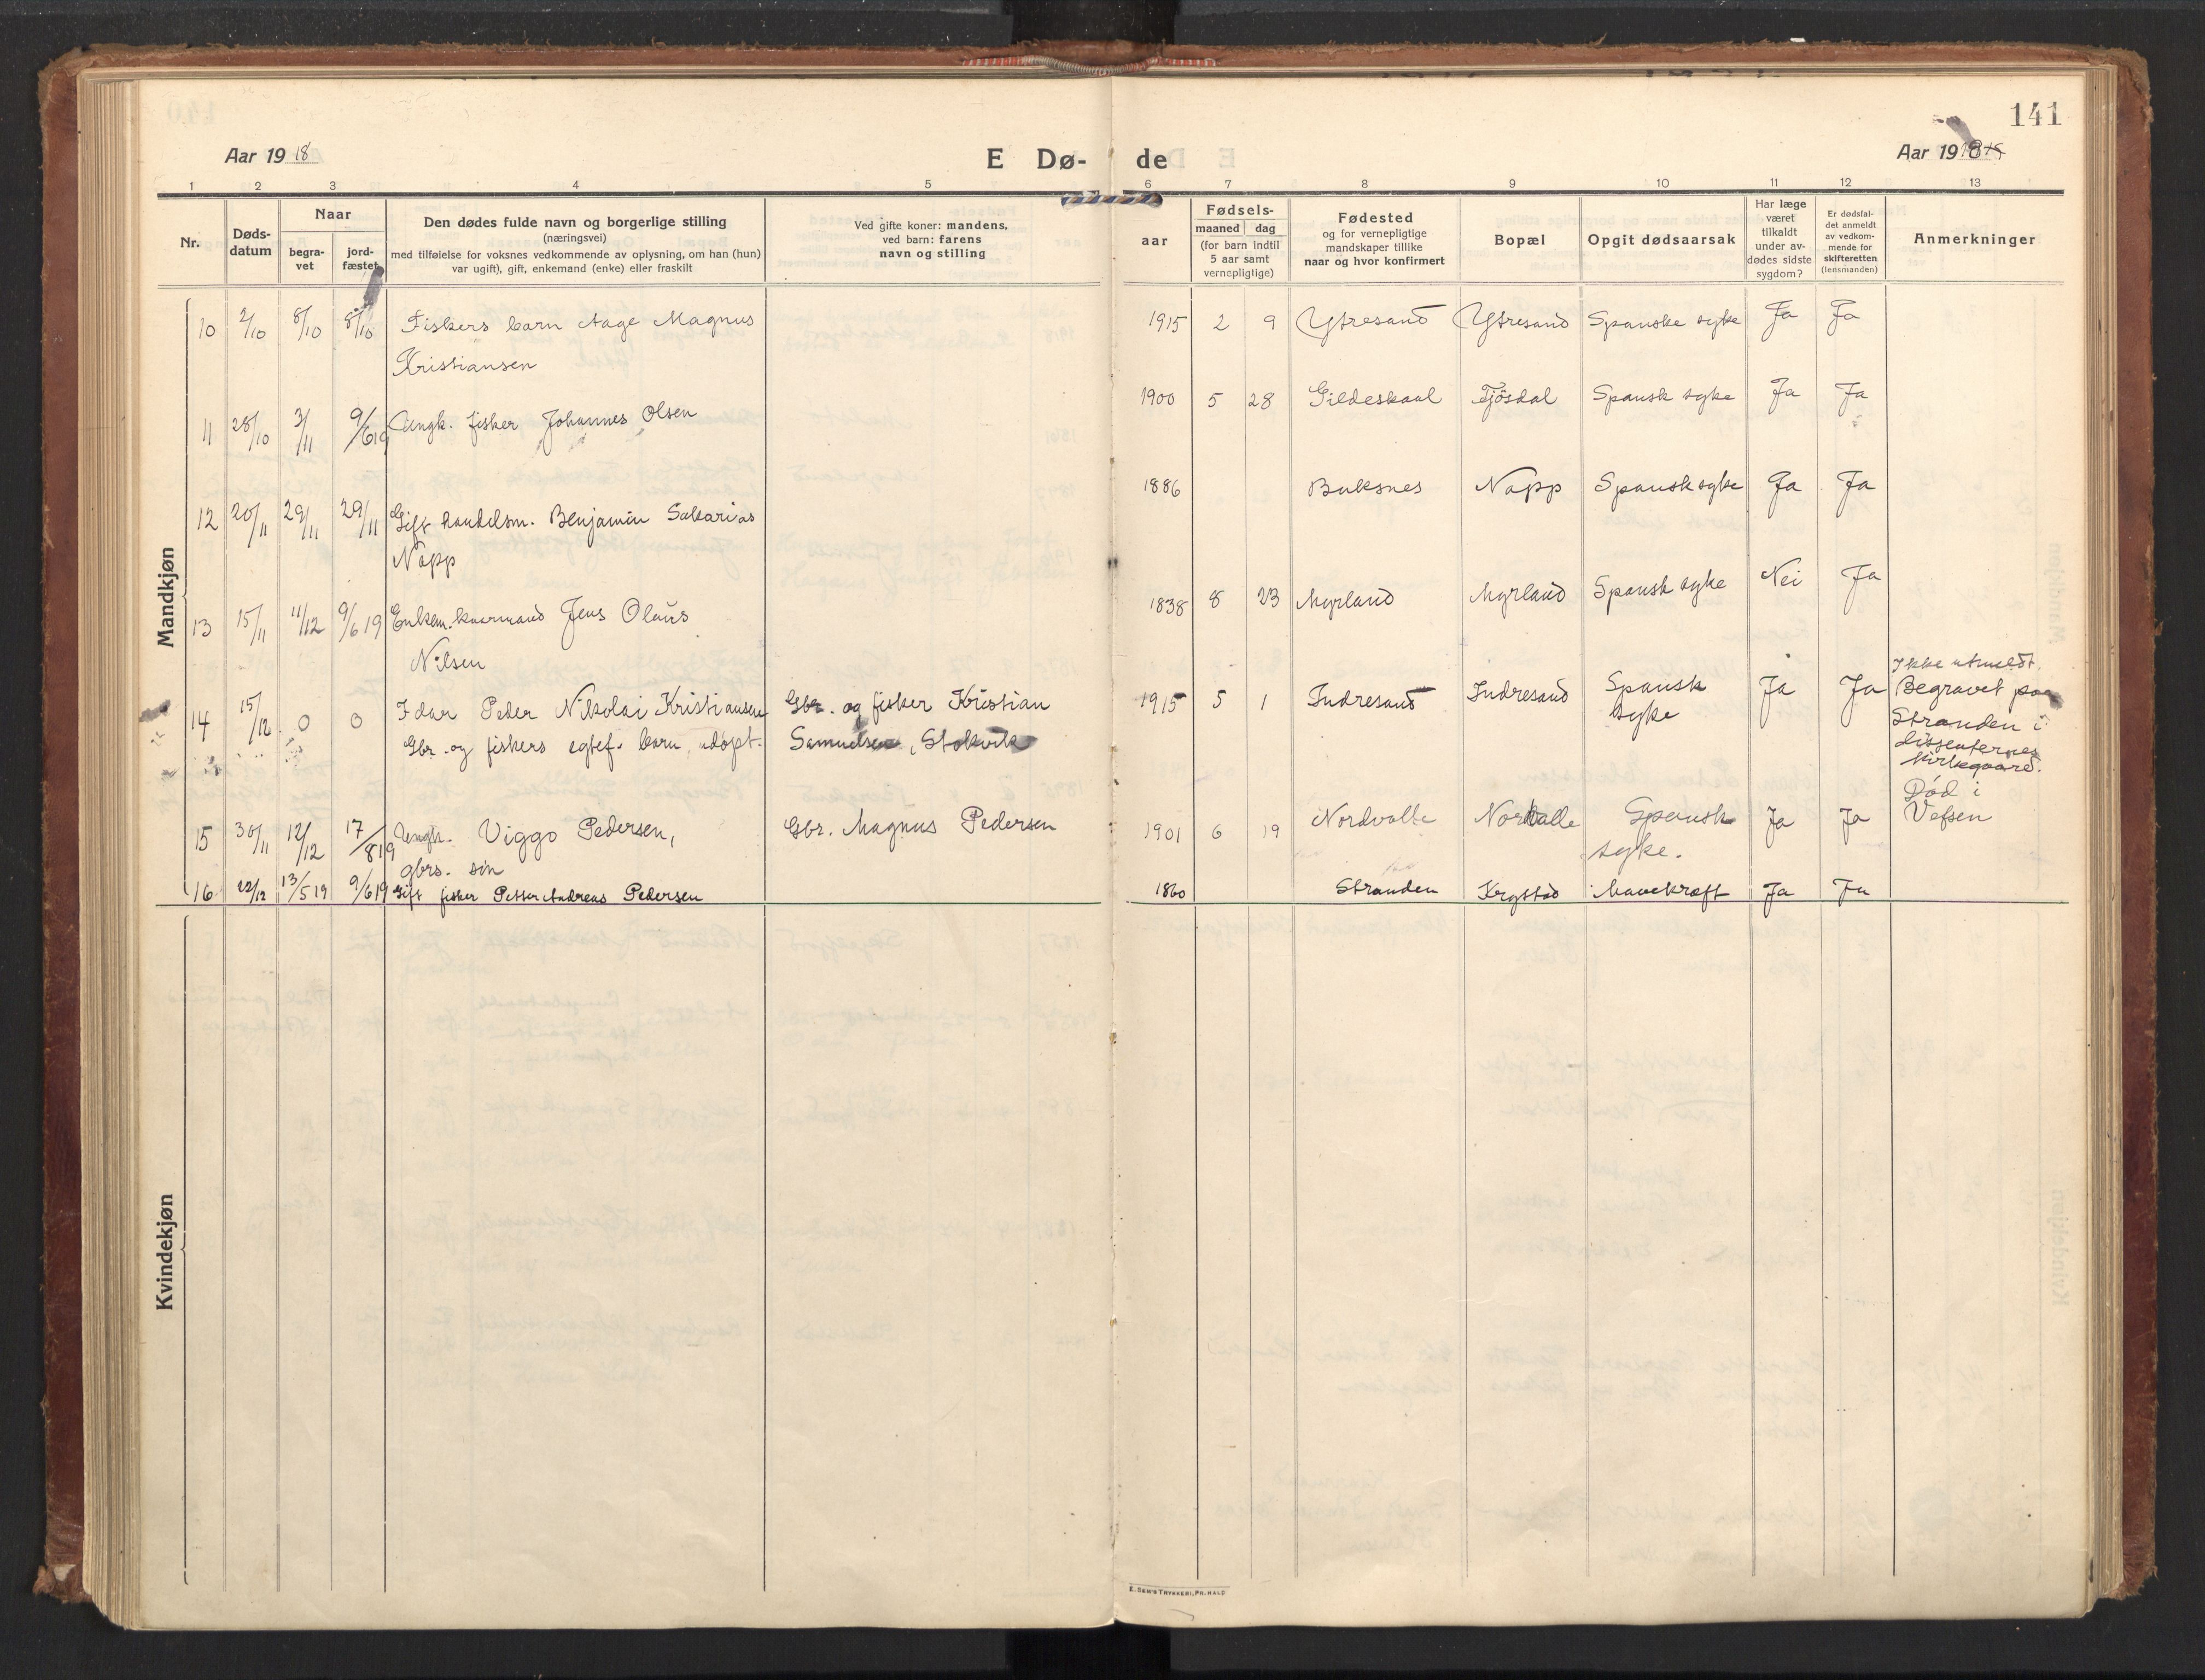 141
Aar 1918
E Dø-de
Aar 1918
1 2 3 4 5 6 7 8 9 10 11 12 13
Nr.
Døds-
datum
Naar
begra-
vet
jord-
fæstet
Den dødes fulde navn og borgerlige stilling
(næringsvei)
med tilføielse for voksnes vedkommende av oplysning, om han (hun)
var ugift), gift, enkemand (enke) eller fraskilt
Ved gifte koner: mandens,
ved barn: farens
navn og stilling
aar
Fødsels-
maaned dag
(for barn indtil
5 aar samt
vernepligtige)
Fødested
og for vernepligtige
mandskaper tillike
naar og hvor konfirmert
Bopæl
Opgit dødsaarsak
Har læge
været
tilkaldt
under av-
dødes sidste
sygdom?
Er dødsfal-
det anmeldt
av vedkom-
mende for
skifteretten
(lensmanden)
Anmerkninger
Mandkjøn
10 2/10 8/10 8/10 Fiskers barn Aage Magnus 1915 2 9 Ytresand Ytresand Spanske syke Ja Ja
Kristiansen
11 28/10 3/11 9/6 19 Ungk. fisker Johannes Olsen 1900 5 28 Gildeskaal Tjösdal Spansk syke Ja Ja
12 20/11 29/11 29/11 Gift handelsm. Benjamin Sakarias 1886 Buksnes Napp Spansk syke Ja Ja
Napp
13 15/11 11/12 9/6 19 Enkem. kaarmand Jens Olaus 1838 8 23 Myrland Myrland Spansk syke Nei Ja
Nilsen
14 15/12 0 0 Idar Peder Nikolai Kristiansen Gbr. og fisker Kristian 1915 5 1 Indresand Indresand Spansk Ja Ja Ikke utmeldt.
Gbr. og fiskers egtef. barn, adopt. Samuelsen, Stokvik syke Begravet paa
Stranden i
dissenternes
kirkegaard.
15 30/11 12/12 17/8 19 Ungk. Viggo Pedersen, Gbr. Magnus Pedersen 1901 6 19 Nordvalle Nordvalle Spansk Ja Ja Död i
gbrs. sön syke. Vefsen
16 22/12 13/5 19 9/6 19 Gift fisker Petter Andreas Pedersen 1860 Stranden Krystad Mavekræft Ja Ja
Kvindekjøn
E. SEM'S TRYKKERI, FR.HALD